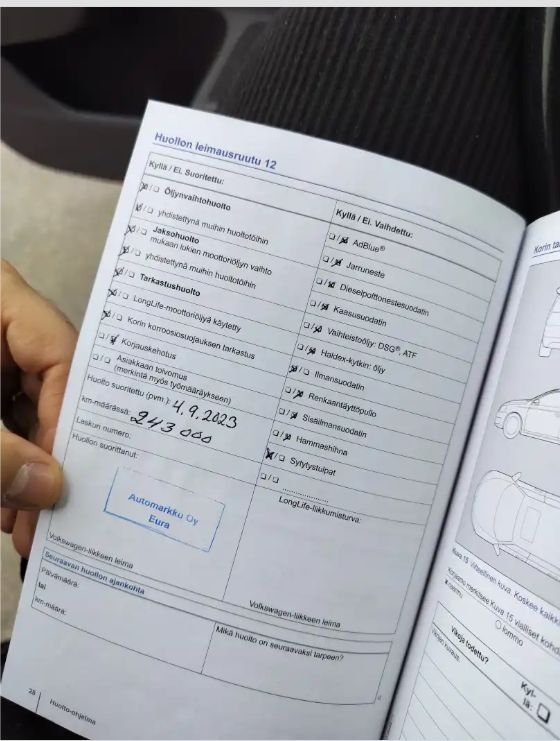 Huollon leimausruutu 12
Kyllä / Ei. Suoritettu:
Öljynvaihtohuolto
yhdistettynä muihin huoltotöihin
Jaksohuolto
mukaan lukien moottoriöljyn vaihto
yhdistettynä muihin huoltotöihin
Tarkastushuolto
LongLife-moottoriöljyä käytetty
Korin korroosiosuojauksen tarkastus
Korjauskehotus
Asiakkaan toivomus
(merkintä myös työmääräykseen)
Huolto suoritettu (pvm.): 4.9.2023
km-määrässä: 243 000
Laskun numero:
Huollon suorittanut:
Automarkku Oy
Eura
Volkswagen-liikkeen leima
Kyllä / Ei. Vaihdettu:
AdBlue®
Jarruneste
Dieselpolttonestesuodatin
Kaasusuodatin
Vaihteistoöljy: DSG®, ATF
Haldex-kytkin: öljy
Ilmansuodatin
Renkaantäyttöpullo
Sisäilmansuodatin
Hammashihna
Sytytystulpat
LongLife-liikkumisturva:
Volkswagen-liikkeen leima
Seuraavan huollon ajankohta
Päivämäärä:
tai
km-määrä:
Mikä huolto on seuraavaksi tarpeen?
28
Huolto-ohjelma
Korin
Kuva 15
Koskee
Kuva 15 vialliset
Vikoja todettu?
Kyl-
lä: